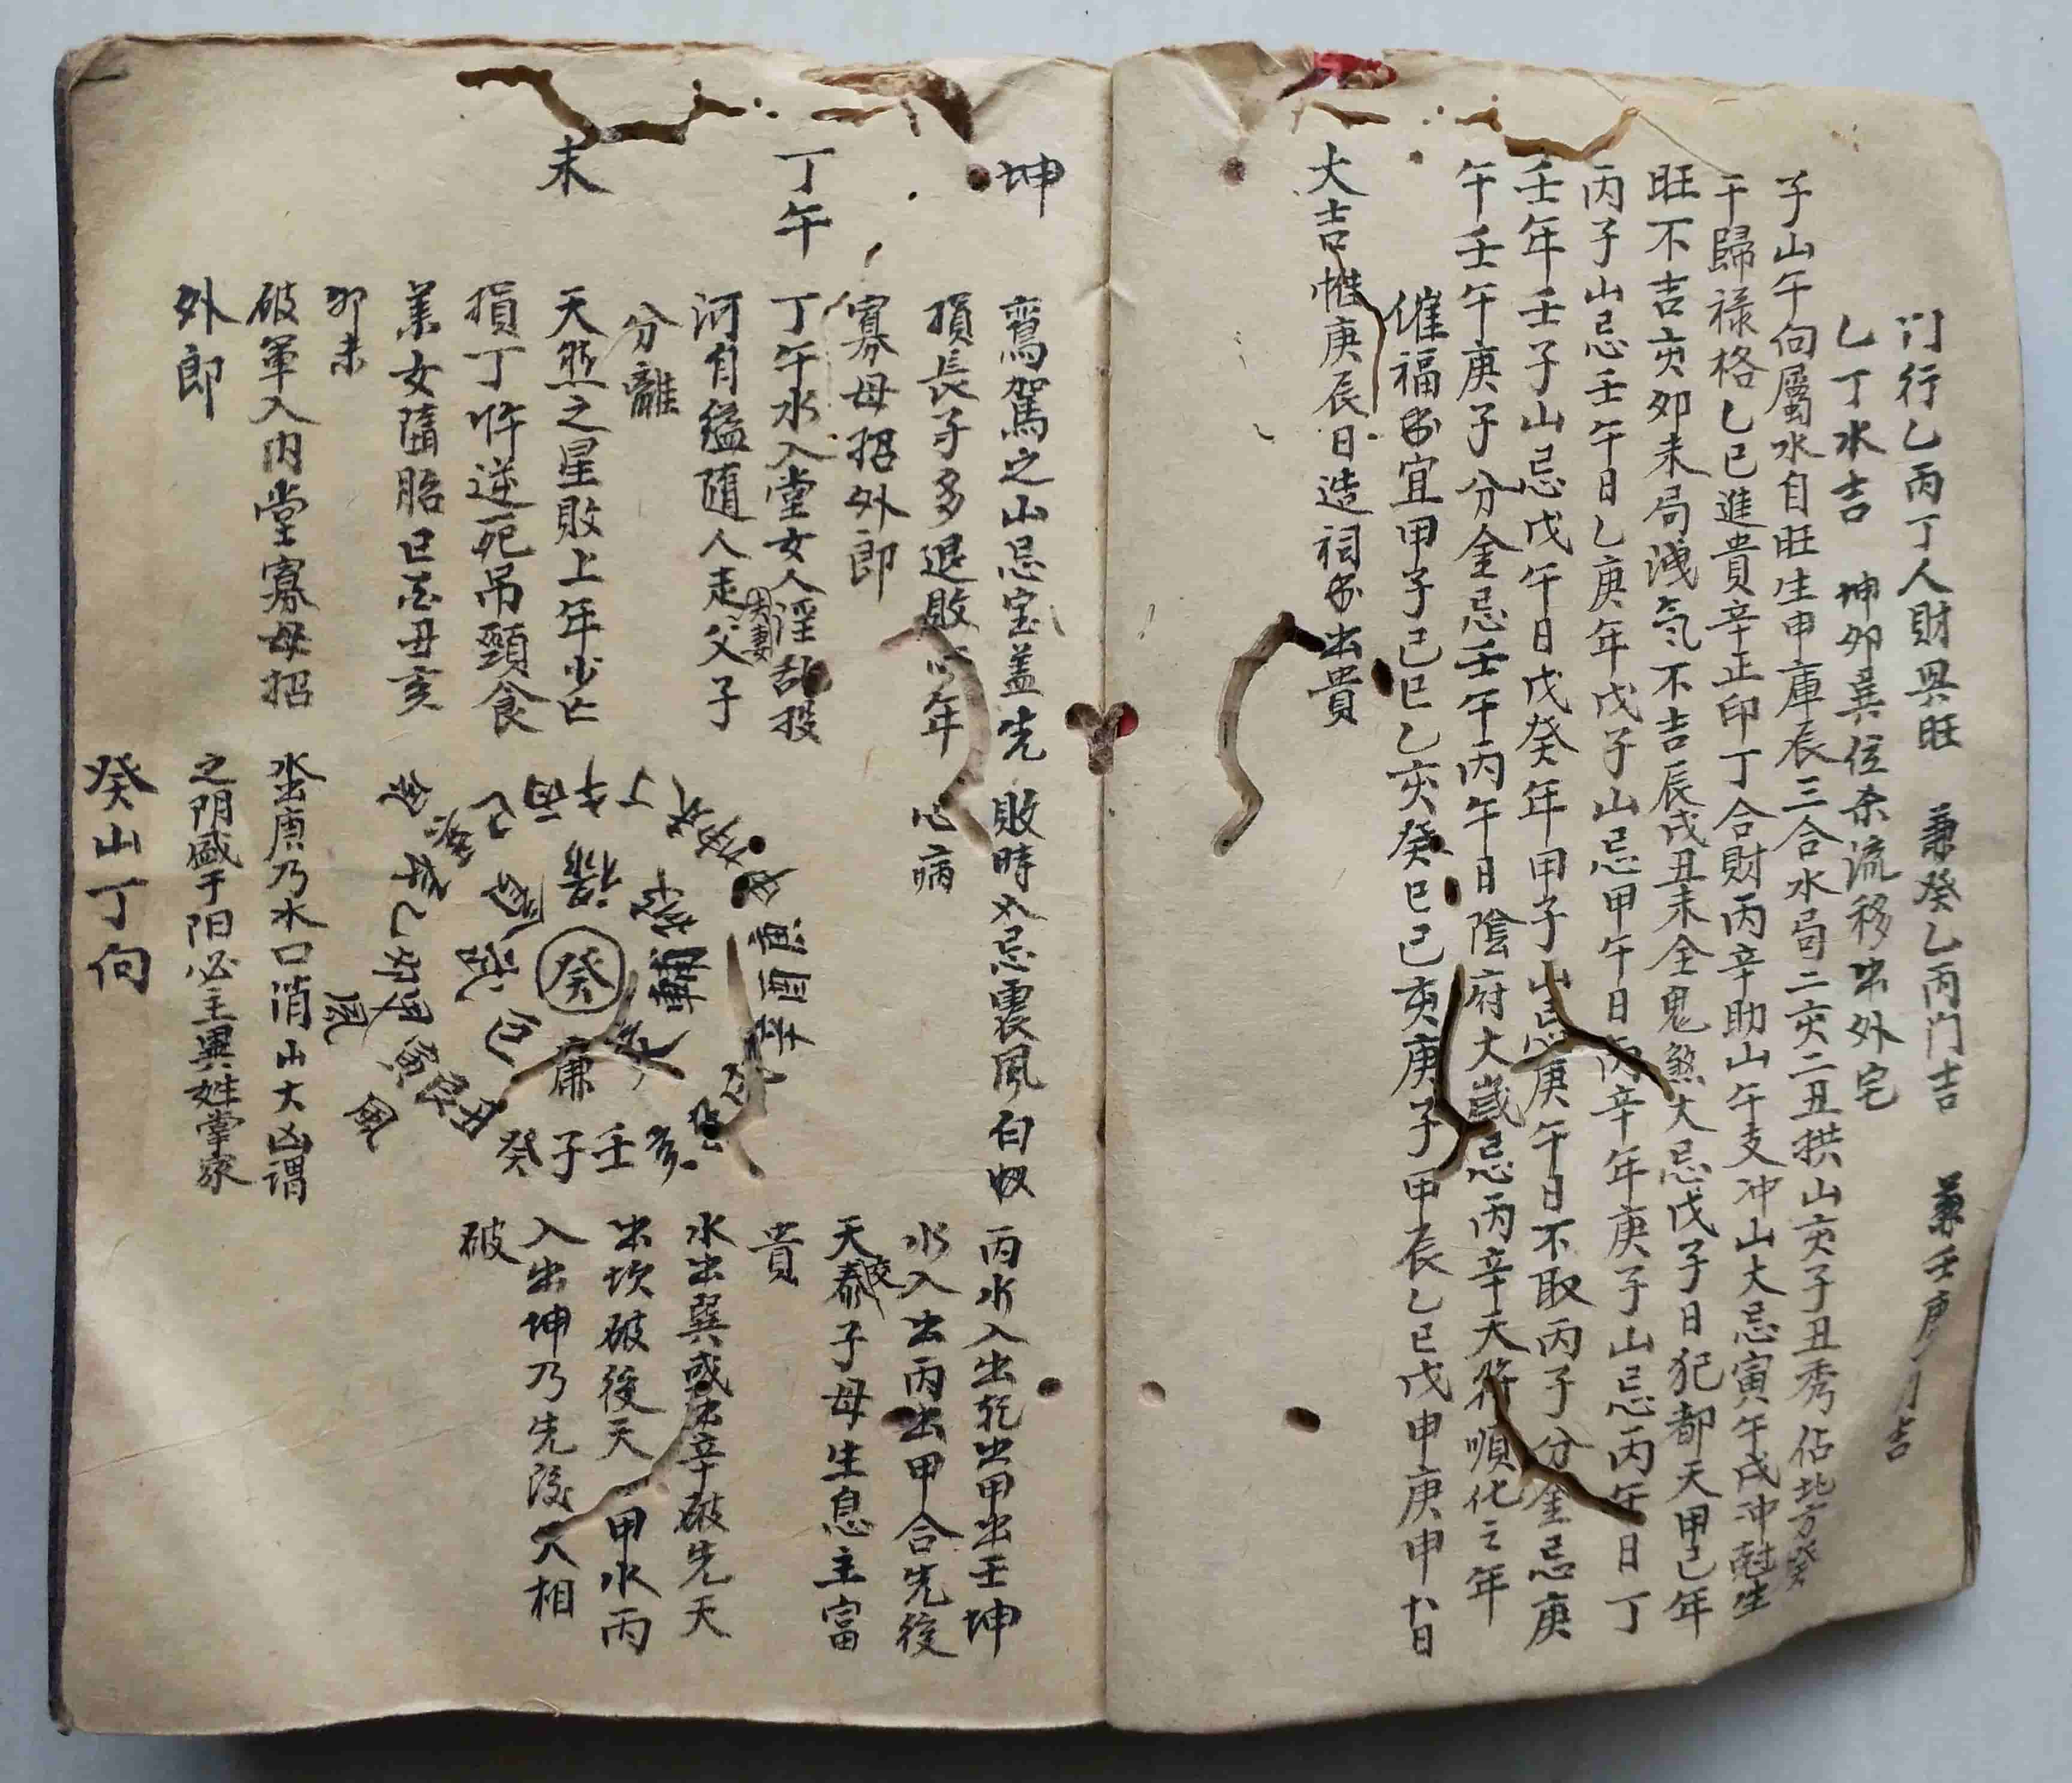 门行乙丙丁人財興旺 兼癸乙丙门吉 兼壬庚 吉
乙丁水吉 坤卯巽位杀流移出外宅
子山午向屬水自旺生申庫辰三合水局二亥二丑拱山亥子丑秀佔北方癸
干歸祿格乙巳進貴辛正印丁合財丙辛助山午支冲山大忌寅午戌冲尅生
旺不吉亥卯未局洩气不吉辰戌丑未全鬼煞大忌戊子日犯都天甲己年
丙子山忌壬午日乙庚年戊子山忌甲午日丙辛年庚子山忌丙午日丁
壬年壬子山忌戊午日戊癸年甲子山忌庚午日不取丙子分金忌庚
午壬午庚子分金忌壬午丙午日陰府大歲忌丙辛天符順化之年
催福 宜甲子己巳乙亥癸巳己亥庚子甲辰乙巳戊申庚申十日
大吉惟庚辰日造祠 出貴
坤
鸞駕之山忌宝盖先 敗時又忌震風白蚁
損長子多退敗 年 心病
寡母招外郎
丁午
丁午水入堂女人淫乱投
河自縊隨人走父子
夫妻
分離
未
天煞之星敗上年少亡
損丁忤逆死吊頸食
葉女隨胎巳 丑亥
卯未
破軍入内堂寡母招
外郎
丙水入出乾出甲出壬坤
水入出丙出甲合先後
天泰子母生息主富
交
貴
水出巽或出辛破先天
出坎破後天 甲水丙
入出坤乃先後天相
破
癸
廉
癸子壬亥
丁午丙巳
庚酉辛
水出庚乃水口消山大凶谓
之阴盛于阳必主異姓掌家
癸山丁向